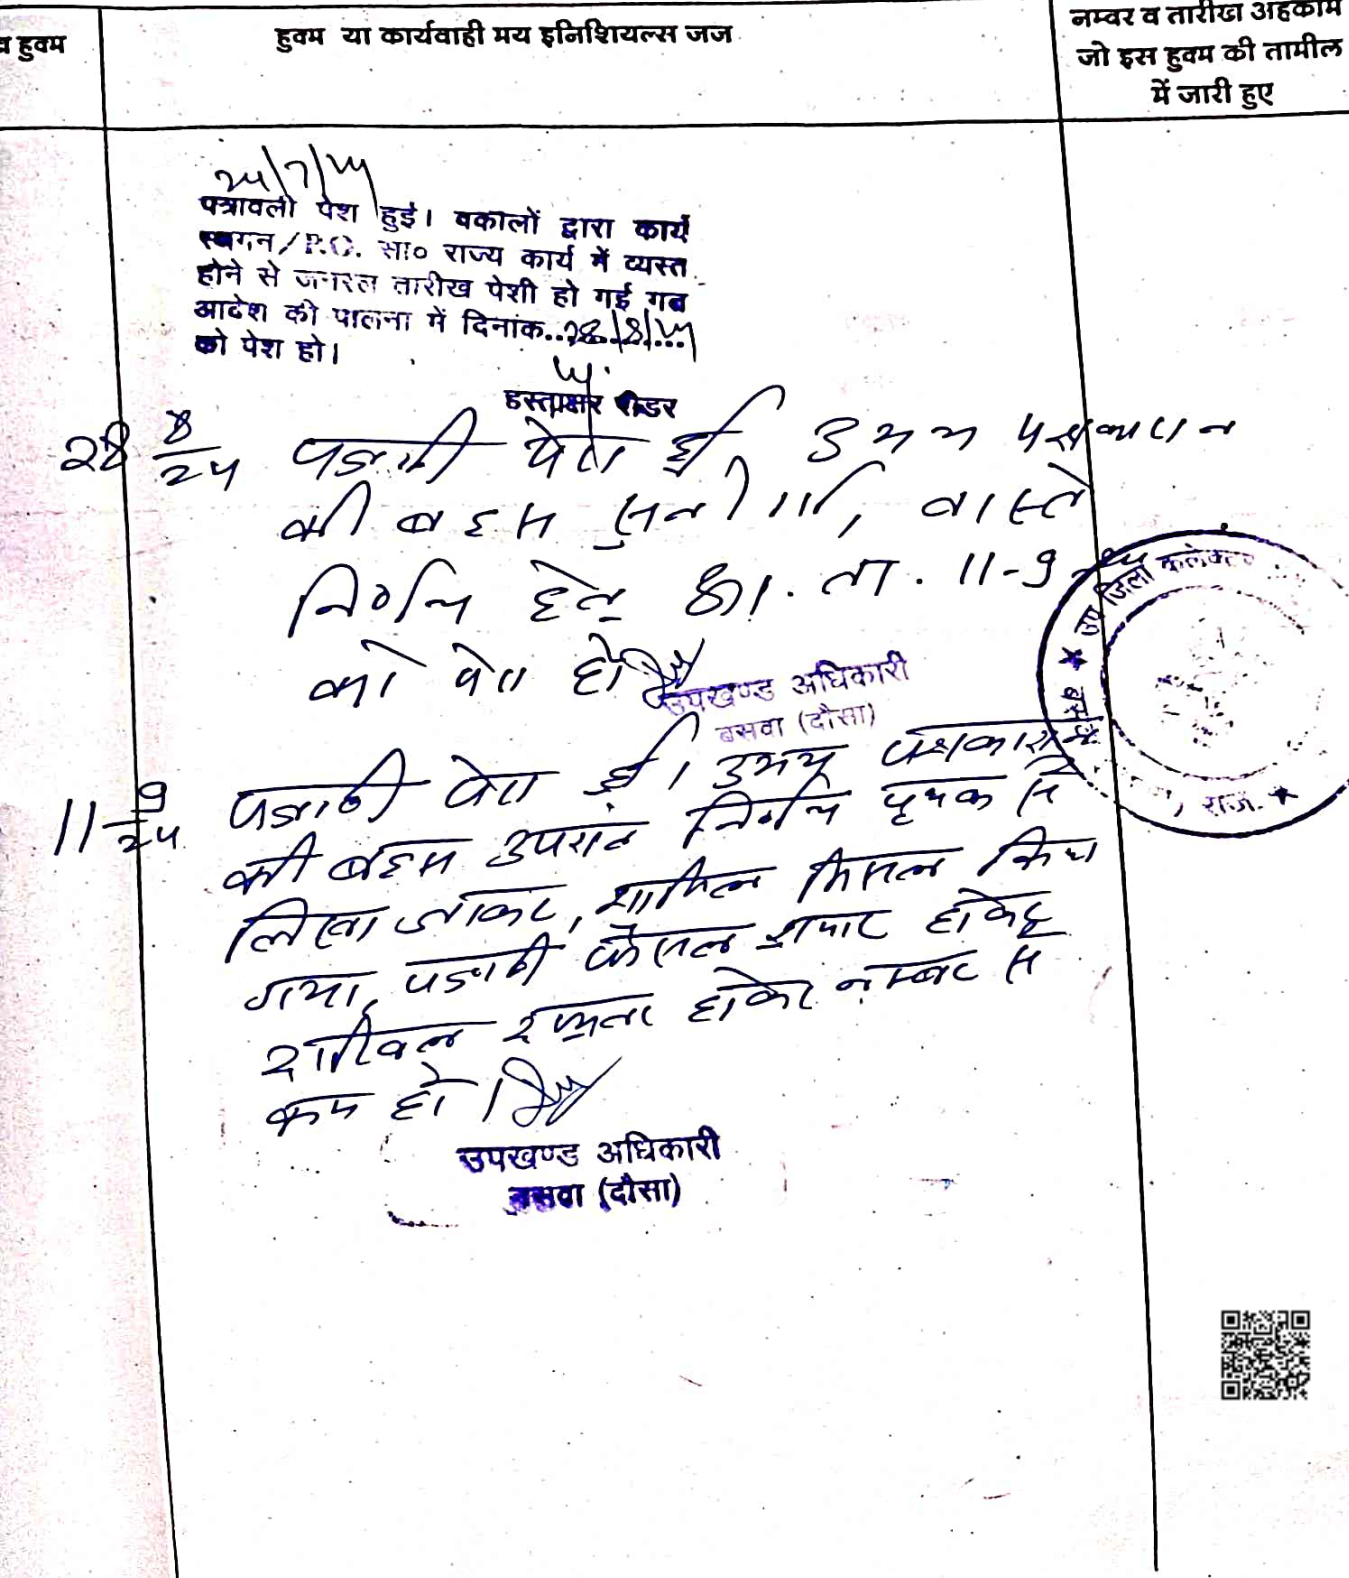 व हुक्म
हुक्म या कार्यवाही मय इनिशियल्स जज
नम्बर व तारीख अहकाम
जो इस हुक्म की तामील
में जारी हुए
पत्रावली पेश हुई। वकीलों द्वारा कार्य
स्थगन/P.O. सा० राज्य कार्य में व्यस्त
होने से जनरल तारीख पेशी हो गई गत
आदेश की पालना में दिनांक..28/8/24...
को पेश हो।
हस्ताक्षर रीडर
28 8/24 पत्रावली पेश हुई, उभय पक्षकारान
की बहस सुनी गई, वास्ते
निर्णय हेतु ता. 11-9
को पेश हो
उपखण्ड अधिकारी
बसवा (दौसा)
उप जिला कलेक्टर
राज.
11 9/24 पत्रावली पेश हुई। उभय पक्षकारान
की बहस उपरांत निर्णय पृथक से
लिखा जाकर, शामिल मिसल किया
गया, पत्रावली फैसल शुमार होकर
दाखिल दफ्तर होकर नम्बर से
कम हो।
उपखण्ड अधिकारी
बसवा (दौसा)